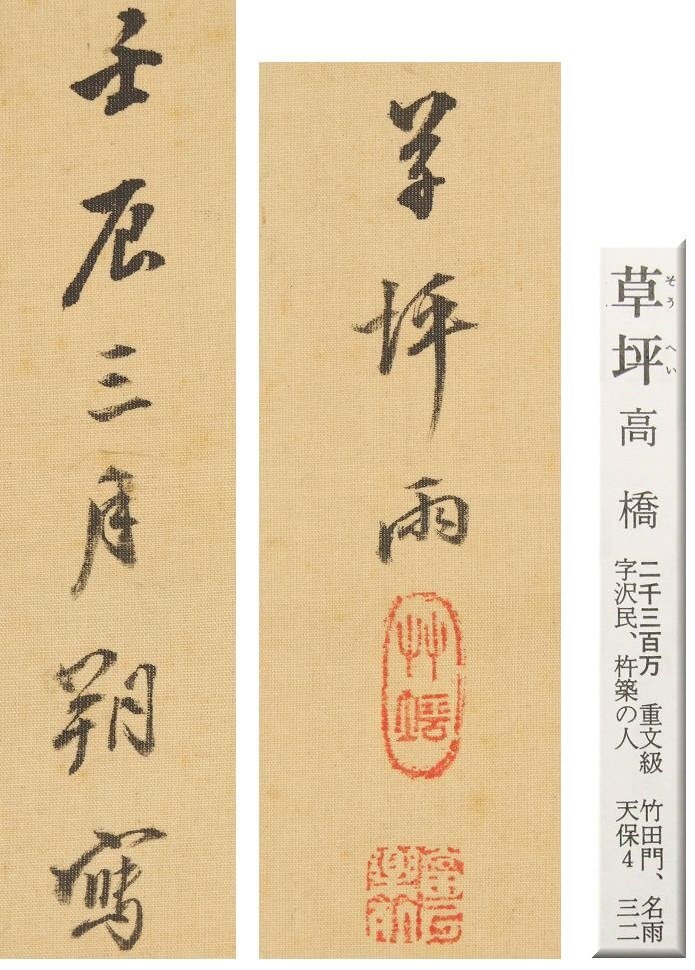 壬辰三月朔寫
草坪雨
草坪 高橋
そうへい
二千三百万 重文級 竹田門、名雨
字沢民、杵築の人 天保4 三二